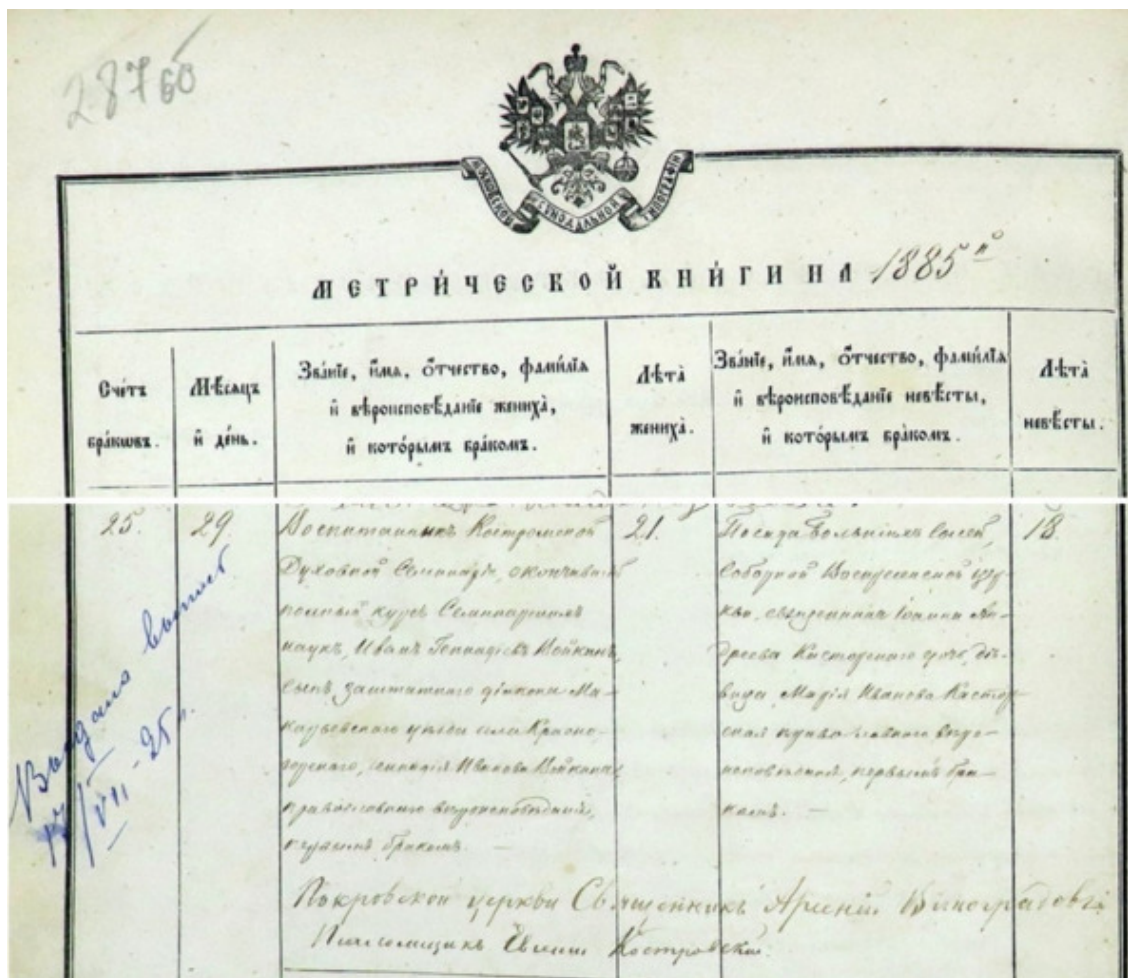 287 об
МОСКОВСКОЙ СѴНОДАЛЬНОЙ ТИПОГРАФІИ
МЕТРИ́ЧЕСКОЙ КНИ́ГИ НА 1885 й
Сче́тъ бра́кѡвъ.
Мѣ́сяцъ и҆ де́нь.
Зва́нїе, и҆́мѧ, ѻ҆́тчество, фамилїѧ
и҆ вѣроисповѣ́данїе жениха̀,
и҆ кото́рымъ бра́комъ.
Лѣта̀ жениха̀.
Зва́нїе, и҆́мѧ, ѻ҆́тчество, фами́лїѧ
и҆ вѣроисповѣ́данїе невѣ́сты,
и҆ кото́рымъ бра́комъ.
Лѣта̀ невѣ́сты.
25.
29.
Воспитанникъ Костромской
Духовной Семинаріи, окончившій
полный курсъ Семинарскихъ
наукъ, Иванъ Геннадіевъ Войкинъ,
сынъ заштатнаго діакона Ма-
карьевскаго уѣзда села Красно-
горскаго, Геннадія Иванова Войкина,
православнаго вѣроисповѣданія,
первымъ бракомъ. —
21.
Посада Большихъ Солей,
Соборной Воскресенской цер-
кви, священника Іоанна Ан-
дреева Касторскаго дочь, дѣ-
вица Марія Иванова Кастор-
ская православнаго вѣро-
исповѣданія, первымъ бра-
комъ. —
18.
Выдано выпись
17/VII - 25 г.
Покровской церкви Священникъ Арсеній Виноградовъ
Псаломщикъ Евгеній Костровскій.